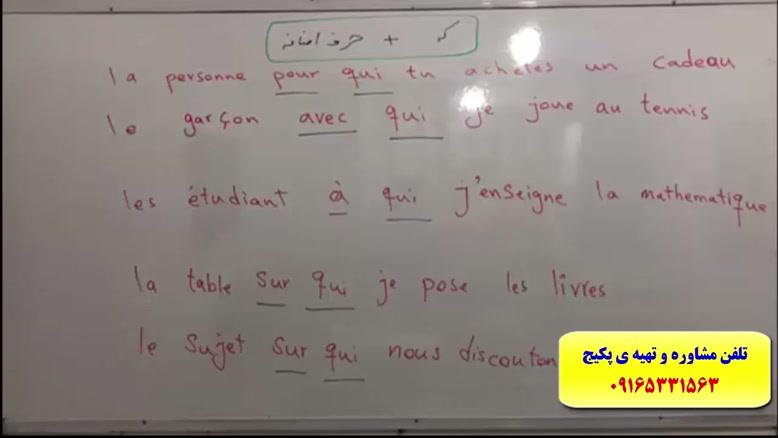 که + حرف اضافه
la personne pour qui tu achetes un cadeau
le garçon avec qui je joue au tennis
les étudiant à qui j'enseigne la mathematique
la table sur qui je pose les lîvres
le sujet sur qui nous discouton
تلفن مشاوره و تهیه ی پکیج
۰۹۱۶۵۳۳۱۵۶۳